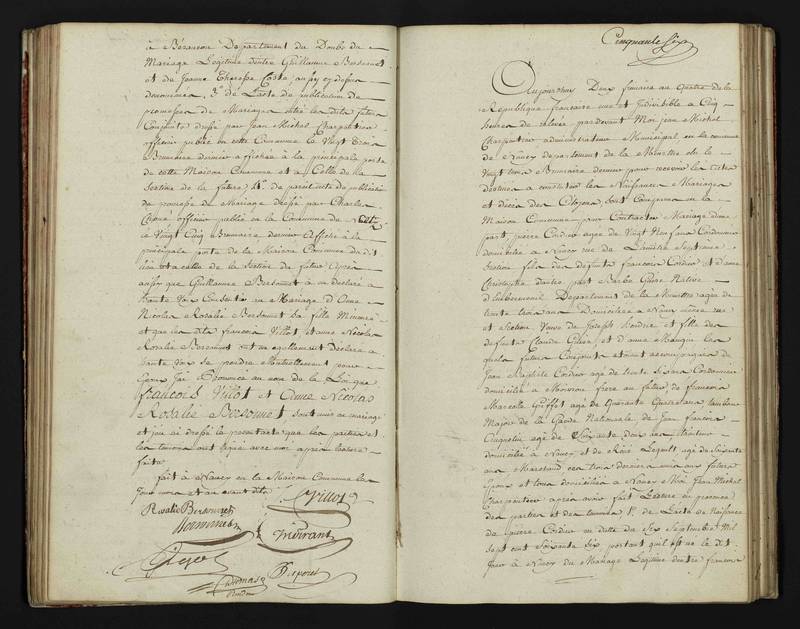 à Besancon Departement du Doubs de
Mariage Légitime d'entre Guillaume Bersonnet
et de Jeanne Therese Coste, aussy cy dessus
denommés, 3° de L'acte de publication de
promesses de Mariage entre les dits futurs
Conjoints dressé par Jean Michel Charpentier
officier public en cette Commune le Vingt trois
Brumaire dernier affichée à la principale porte
de cette Maison Commune et à Celle de la
Section de la future, 4° de pareil acte de publication
de promesse de Mariage dressé par Charles
officier public en la Commune de
le Vingt Cinq Brumaire dernier Affiché à la
principale porte de la Maison Commune du dit
lieu et à celle de la Section du futur Après
aussy que Guillaume Bersonnet a eu déclaré à
haute voix Consentir au Mariage d'Anne
Nicolas Rosalie Bersonnet sa fille Mineure
et que les dits francois Villot et anne Nicolas
Rosalie Bersonnet ont eu egallement Déclaré à
haute voix se prendre Mutuellement pour
Epoux J'ai Prononcé au nom de la Loi que
francois Villot et Anne Nicolas
Rosalie Bersonnet sont unis en mariage
et j'ai dressé le present acte que les parties et
les temoins ont signé avec moi après lecture
faite
fait à Nancy en la Maison Commune les
jour mois et an avant dits
Villot
Rosalie Bersonnet
Cinquante Six
Aujourdhuy Deux frimaire an Quatre de la
République francaise une et Indivisible à Cinq
heures de relevée pardevant Moi Jean Michel
Charpentier administrateur Municipal en la commune
de Nancy departement de la Meurthe élu le
Vingt trois Brumaire dernier pour recevoir les actes
destinés à constater les Naissances Mariages
et décès des Citoyens, sont Comparus en la
Maison Commune pour Contracter Mariage d'une
part pierre Cordier agé de Vingt Neuf ans Cordonnier
domicilié à Nancy rue de Septieme
Section fils des defunts francois Cordier et d'anne
Christophe d'autre part Barbe Native
Departement de la Meurthe agée de
trente trois ans Domiciliée à Nancy même rue
et Section Veuve de Joseph et fille des
defunts Claude et d'anne Mangin les
quels futurs Conjoints etoient accompagnés de
Jean Baptiste Cordier agé de trente Six ans Cordonnier
domicilié à frere au futur, de francois
Marcotte Giffot agé de Quarante Quatre ans tambour
Major de la Garde Nationale, de Jean francois
agé de Soixante deux ans
domicilié à Nancy et de Rémi agé de Soixante
ans Marchand ces trois derniers amis aux futurs
Epoux et tous domiciliés à Nancy Moi Jean Michel
Charpentier après avoir fait Lecture en presence
des parties et des temoins 1° de L'acte de Naissance
de pierre Cordier en datte du Six Septembre Mil
Sept cent Soixante Six portant qu'il est né le dit
Jour à Nancy du Mariage Légitime d'entre francois